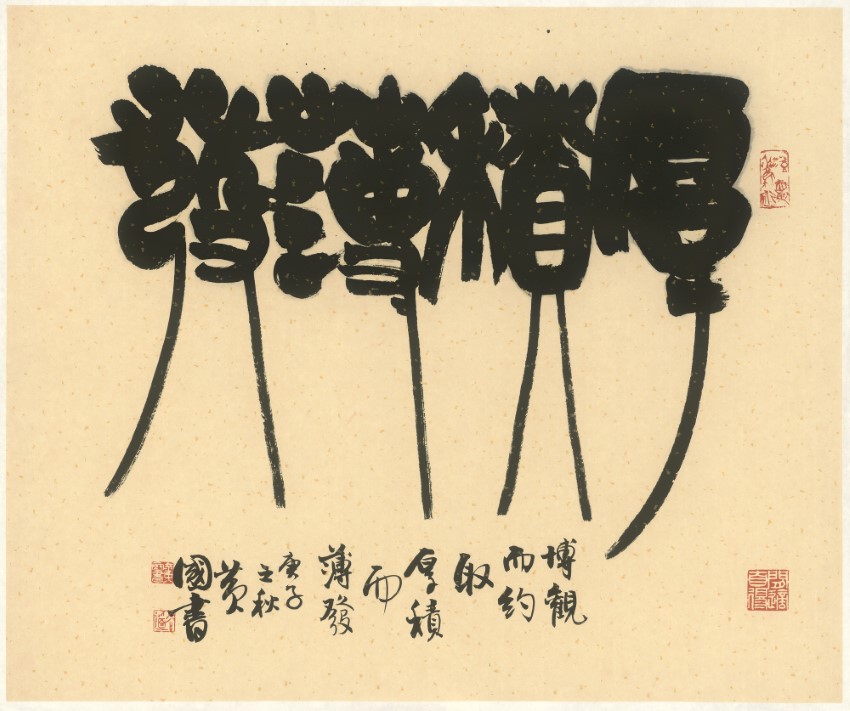 厚積薄發
博観
而約
取
厚積
而
薄發
庚子
之秋
黄
國書